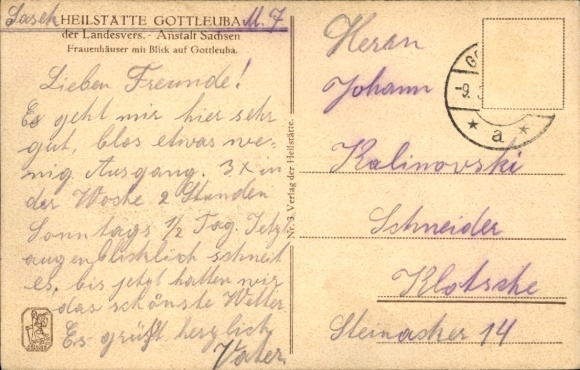 HEILSTÄTTE GOTTLEUBA M. 7
der Landesvers.- Anstalt Sachsen
Frauenhäuser mit Blick auf Gottleuba.
Lieben Freunde!
Es geht mir hier sehr
gut, blos etwas we-
nig Ausgang. 3x in
der Woche 2 Stunden
Sonntags 1/2 Tag. Jetzt
augenblicklich schneit
es, bis jetzt hatten wir
das schönste Wetter
Es grüßt herzlich
Vater
Nr. 3. Verlag der Heilstätte.
Herrn
Johann
Kalinovski
Schneider
Klotsche
Steinacher 14
GO
-9.
* a *